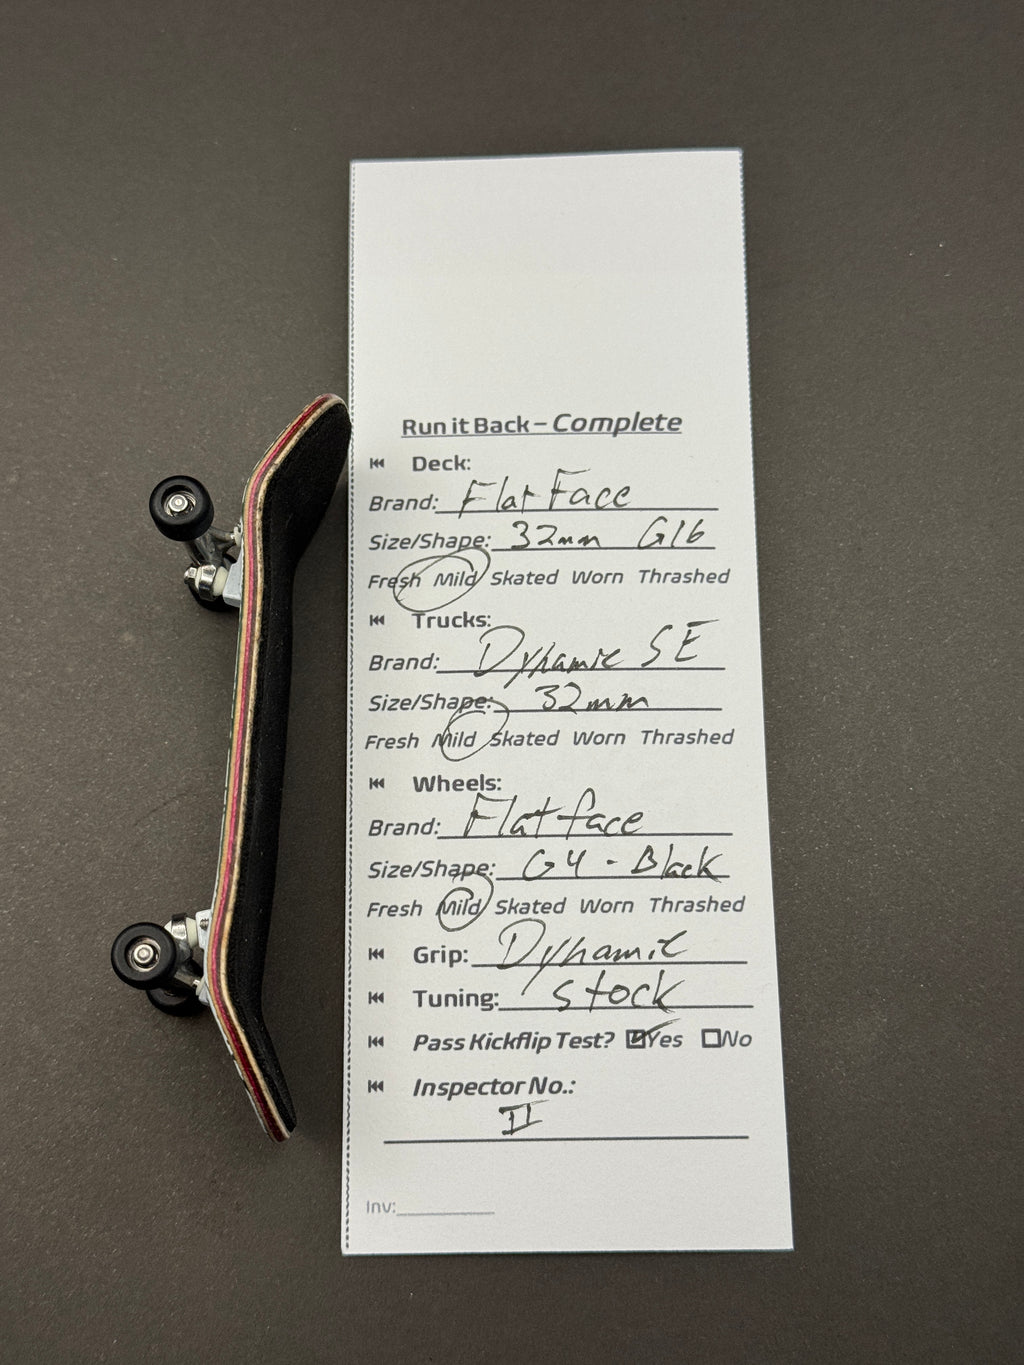 Run it Back – Complete
Deck:
Brand: FlatFace
Size/Shape: 32mm G16
Fresh Mild Skated Worn Thrashed
Trucks:
Brand: Dynamic SE
Size/Shape: 32mm
Fresh Mild Skated Worn Thrashed
Wheels:
Brand: Flatface
Size/Shape: G4 - Black
Fresh Mild Skated Worn Thrashed
Grip: Dynamic
Tuning: stock
Pass Kickflip Test? Yes No
Inspector No.:
II
Inv: